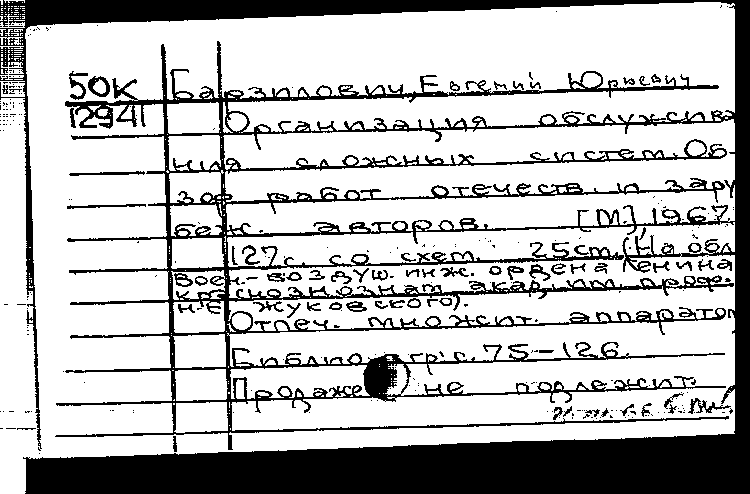 50К
12941
Барзилович, Евгений Юрьевич
Организация обслужива
ния сложных систем. Об-
зор работ отечеств. и зару
беж. авторов. [М.], 1967.
127с. со схем. 25cm. (На обл
Воен.-воздуш. инж. ордена Ленина
краснознам. акад. им. проф.
Н.Е. Жуковского).
Отпеч. множит. аппаратом
Библиогр: с. 75-126.
Продаже не подлежит.